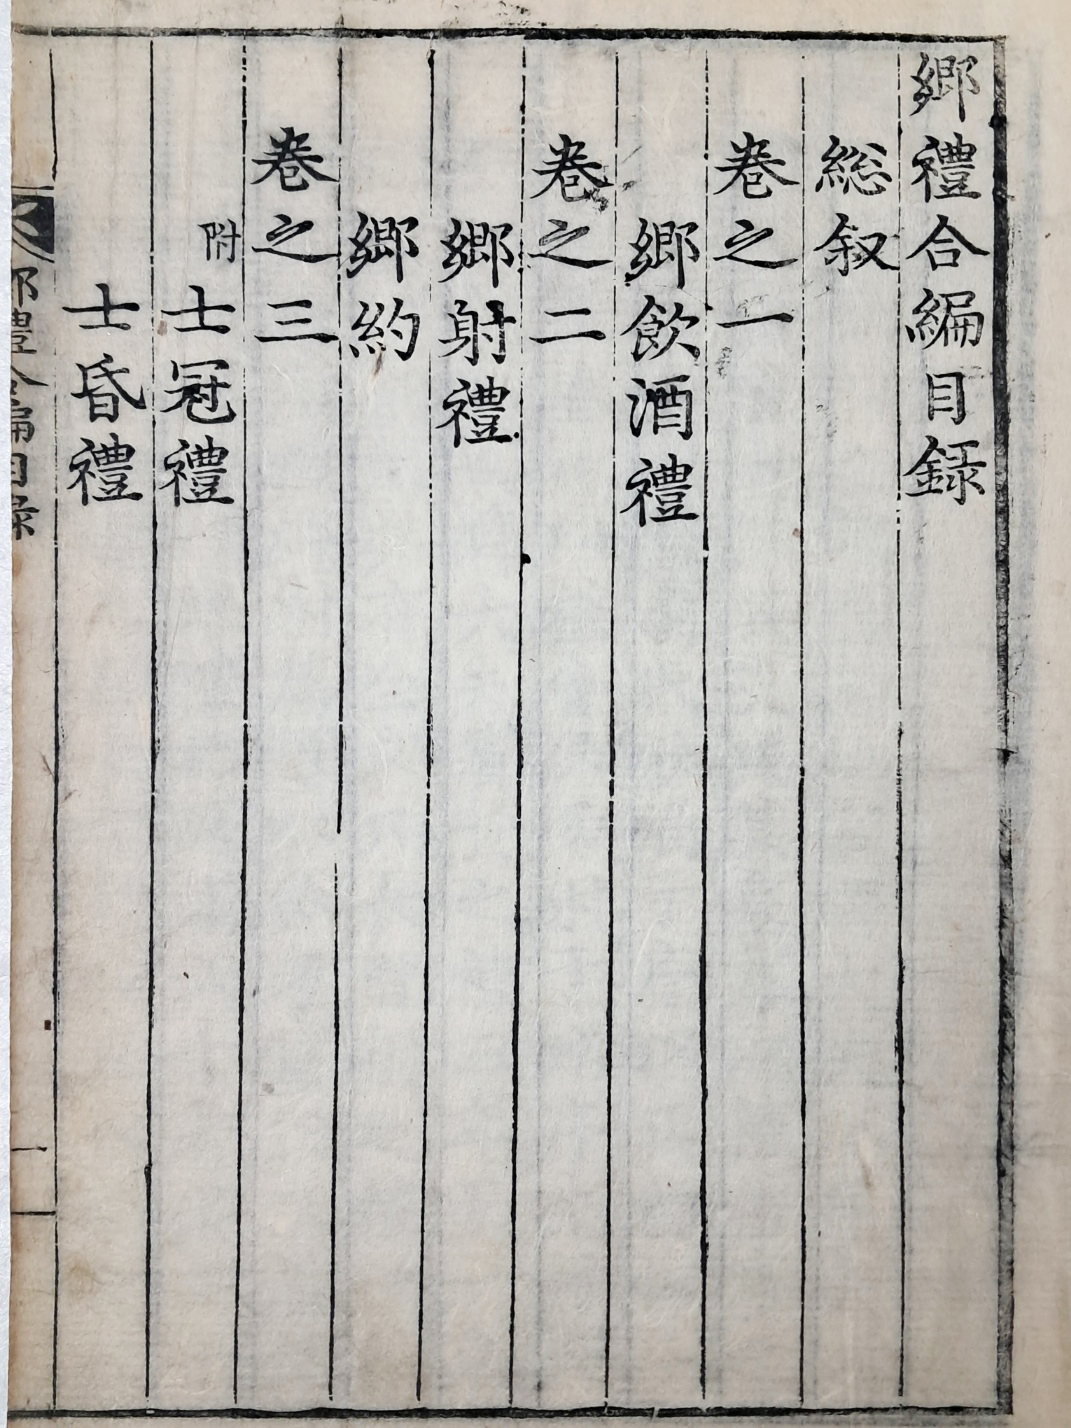 鄉禮合編目録
総叙
卷之一
鄉飲酒禮
卷之二
鄉射禮
鄉約
卷之三
附
士冠禮
士昏禮
鄉禮合編目錄
一